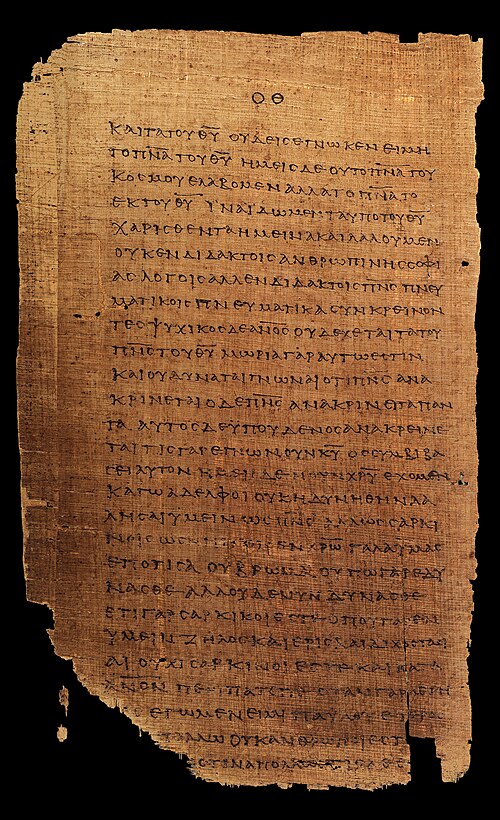 ΟΘ
ΚΑΙΤΑΤΟΥΘ̅Υ̅ ΟΥΔΕΙϹΕΓΝΩΚΕΝΕΙΜΗ
ΤΟΠ̅Ν̅Α̅ΤΟΥΘ̅Υ̅ ΗΜΕΙϹΔΕΟΥΤΟΠ̅Ν̅Α̅ΤΟΥ
ΚΟϹΜΟΥΕΛΑΒΟΜΕΝΑΛΛΑΤΟΠ̅Ν̅Α̅ΤΟ
ΕΚΤΟΥΘ̅Υ̅ ΪΝΑΪΔΩΜΕΝΤΑΥΠΟΤΟΥΘ̅Υ̅
ΧΑΡΙϹΘΕΝΤΑΗΜΕΙΝΑΚΑΙΛΑΛΟΥΜΕΝ
ΟΥΚΕΝΔΙΔΑΚΤΟΙϹΑΝΘΡΩΠΙΝΗϹϹΟΦΙ
ΑϹΛΟΓΟΙϹΑΛΛΕΝΔΙΔΑΚΤΟΙϹΠ̅Ν̅Ϲ̅ΠΝΕΥ
ΜΑΤΙΚΟΙϹΠΝΕΥΜΑΤΙΚΑϹΥΝΚΡΕΙΝΟΝ
ΤΕϹΨΥΧΙΚΟϹΔΕΑ̅Ν̅Ο̅Ϲ̅ΟΥΔΕΧΕΤΑΙΤΑΤΟΥ
Π̅Ν̅Ϲ̅ΤΟΥΘ̅Υ̅ ΜΩΡΙΑΓΑΡΑΥΤΩΕϹΤΙΝ
ΚΑΙΟΥΔΥΝΑΤΑΙΓΝΩΝΑΙΟΤΙΠ̅Ν̅Ϲ̅ΑΝΑ
ΚΡΙΝΕΤΑΙΟΔΕΠ̅Ν̅Ϲ̅ΑΝΑΚΡΙΝΕΙΤΑΠΑΝ
ΤΑ ΑΥΤΟϹΔΕΥΠΟΥΔΕΝΟϹΑΝΑΚΡΕΙΝΕ
ΤΑΙΤΙϹΓΑΡΕΓΝΩΝΟΥΝΚ̅Υ̅ ΟϹϹΥΜΒΙΒΑ
ϹΕΙΑΥΤΟΝΗΜΕΙϹΔΕΝΟΥΝΧ̅Ρ̅Υ̅ΕΧΟΜΕΝ
ΚΑΓΩΑΔΕΛΦΟΙΟΥΚΗΔΥΝΗΘΗΝΛΑ
ΛΗϹΑΙΥΜΕΙΝΩϹΠ̅Ν̅Ϲ̅ΑΛΛΩϹϹΑΡΚΙ
ΝΟΙϹΩϹΝΗΠΙΟΙϹΕΝΧ̅Ρ̅Ω̅ΓΑΛΑΥΜΑϹ
ΕΠΟΤΙϹΑΟΥΒΡΩΜΑΟΥΠΩΓΑΡΕΔΥ
ΝΑϹΘΕΑΛΛΟΥΔΕΝΥΝΔΥΝΑϹΘΕ
ΕΤΙΓΑΡϹΑΡΚΙΚΟΙΕϹΤΕΟΠΟΥΓΑΡΕΝ
ΥΜΕΙΝΖΗΛΟϹΚΑΙΕΡΙϹΚΑΙΔΙΧΟϹΤΑϹΙ
ΑΙΟΥΧΙϹΑΡΚΙΝΟΙΕϹΤΕΚΑΙΚΑΤΑ
Α̅Ν̅Ο̅Ν̅ΠΕΡΙΠΑΤΕΙΤΕ
ΕΓΩΜΕΝΕΙΜΙΠΑΥΛΟΥΕΤΕΡΟ
ΟΥΚΑΝΘΡΩΠΟΙΕϹΤ